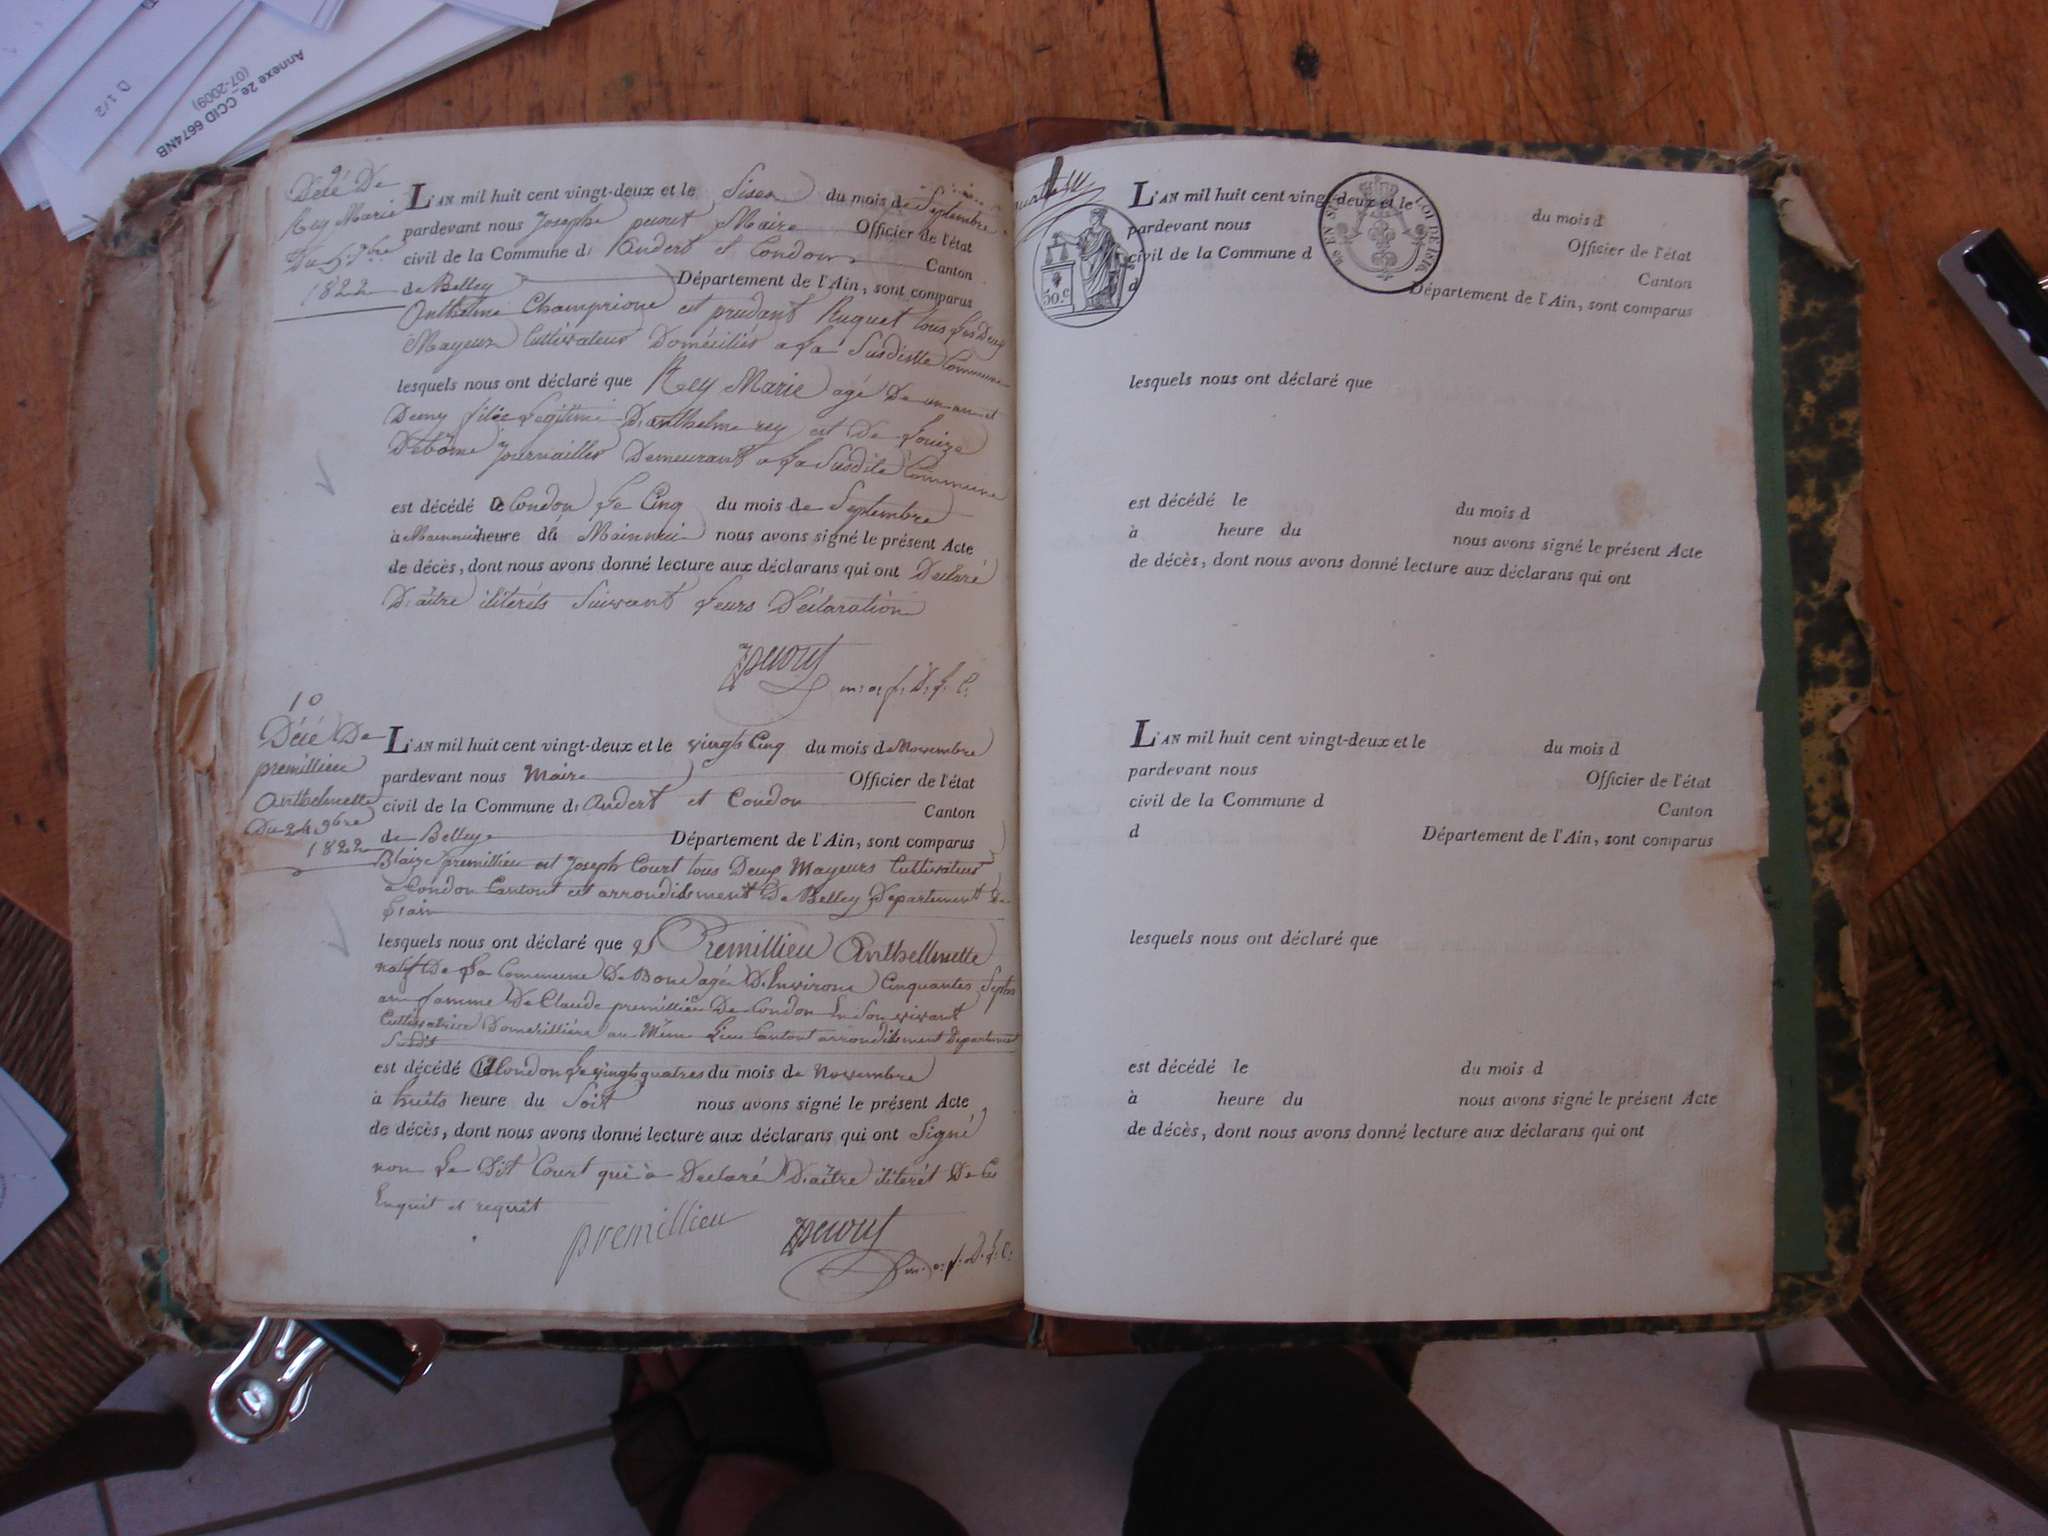 Annexe 2e CCID 6674NB
(07-2009)
D 1/2
9
Décé De
Rey Marie
Du 5 7bre
1822
L'AN mil huit cent vingt-deux et le Sixen du mois de Septembre
pardevant nous Josephe peurut Maire Officier de l'état
civil de la Commune d'Andert et Condon Canton
de Belley Département de l'Ain, sont comparus
Anthelme Champrione et prudant Ruguet tous les Deux
Mayeurs Cultivateurs Domésiliés a La Susdiste Commune
lesquels nous ont déclaré que Rey Marie agé De un an et
Demy fille Legitime D'anthelme rey et De Louize
Debôme Journallier Demeurant a La Susdite Commune
est décédé à Condon Le Cinq du mois de Septembre
à Mainnui heure du Mainnui nous avons signé le présent Acte
de décès, dont nous avons donné lecture aux déclarans qui ont Declaré
D'aître iliterés Suivant Leurs Déclaration
m. a. f. D. L. C.
10
Décé De
premillieu
Anthelmette
Du 24 9bre
1822
L'AN mil huit cent vingt-deux et le vingt Cinq du mois de Novembre
pardevant nous Maire Officier de l'état
civil de la Commune d'Andert et Condon Canton
de Belley Département de l'Ain, sont comparus
Blaize premillieu et Joseph Court tous Deux Mayeurs Cultivateurs
a Condon Cantont et arrondissment De Belley Departement De
L'ain
lesquels nous ont déclaré que Premillieu Anthellmette
natif De La Commune De Bons agé D'Environs Cinquantes Septs
an famme De Claude premillieu De Condon En Son vivant
Cultivatrice Domesillière au Même Lieu Cantont arrondissment Departement
Susdit
est décédé à Condon Le vingts quatres du mois de Novembre
à huits heure du Soit nous avons signé le présent Acte
de décès, dont nous avons donné lecture aux déclarans qui ont Signé
non Le Dit Court qui à Declaré D'aître iliterét De Ce
Enquit et requit
premillieu
m. a. f. D. L. C.
30.c
EN SUS
LOI DE 1816
L'AN mil huit cent vingt-deux et le du mois d
pardevant nous Officier de l'état
civil de la Commune d Canton
d Département de l'Ain, sont comparus
lesquels nous ont déclaré que
est décédé le du mois d
à heure du nous avons signé le présent Acte
de décès, dont nous avons donné lecture aux déclarans qui ont
L'AN mil huit cent vingt-deux et le du mois d
pardevant nous Officier de l'état
civil de la Commune d Canton
d Département de l'Ain, sont comparus
lesquels nous ont déclaré que
est décédé le du mois d
à heure du nous avons signé le présent Acte
de décès, dont nous avons donné lecture aux déclarans qui ont